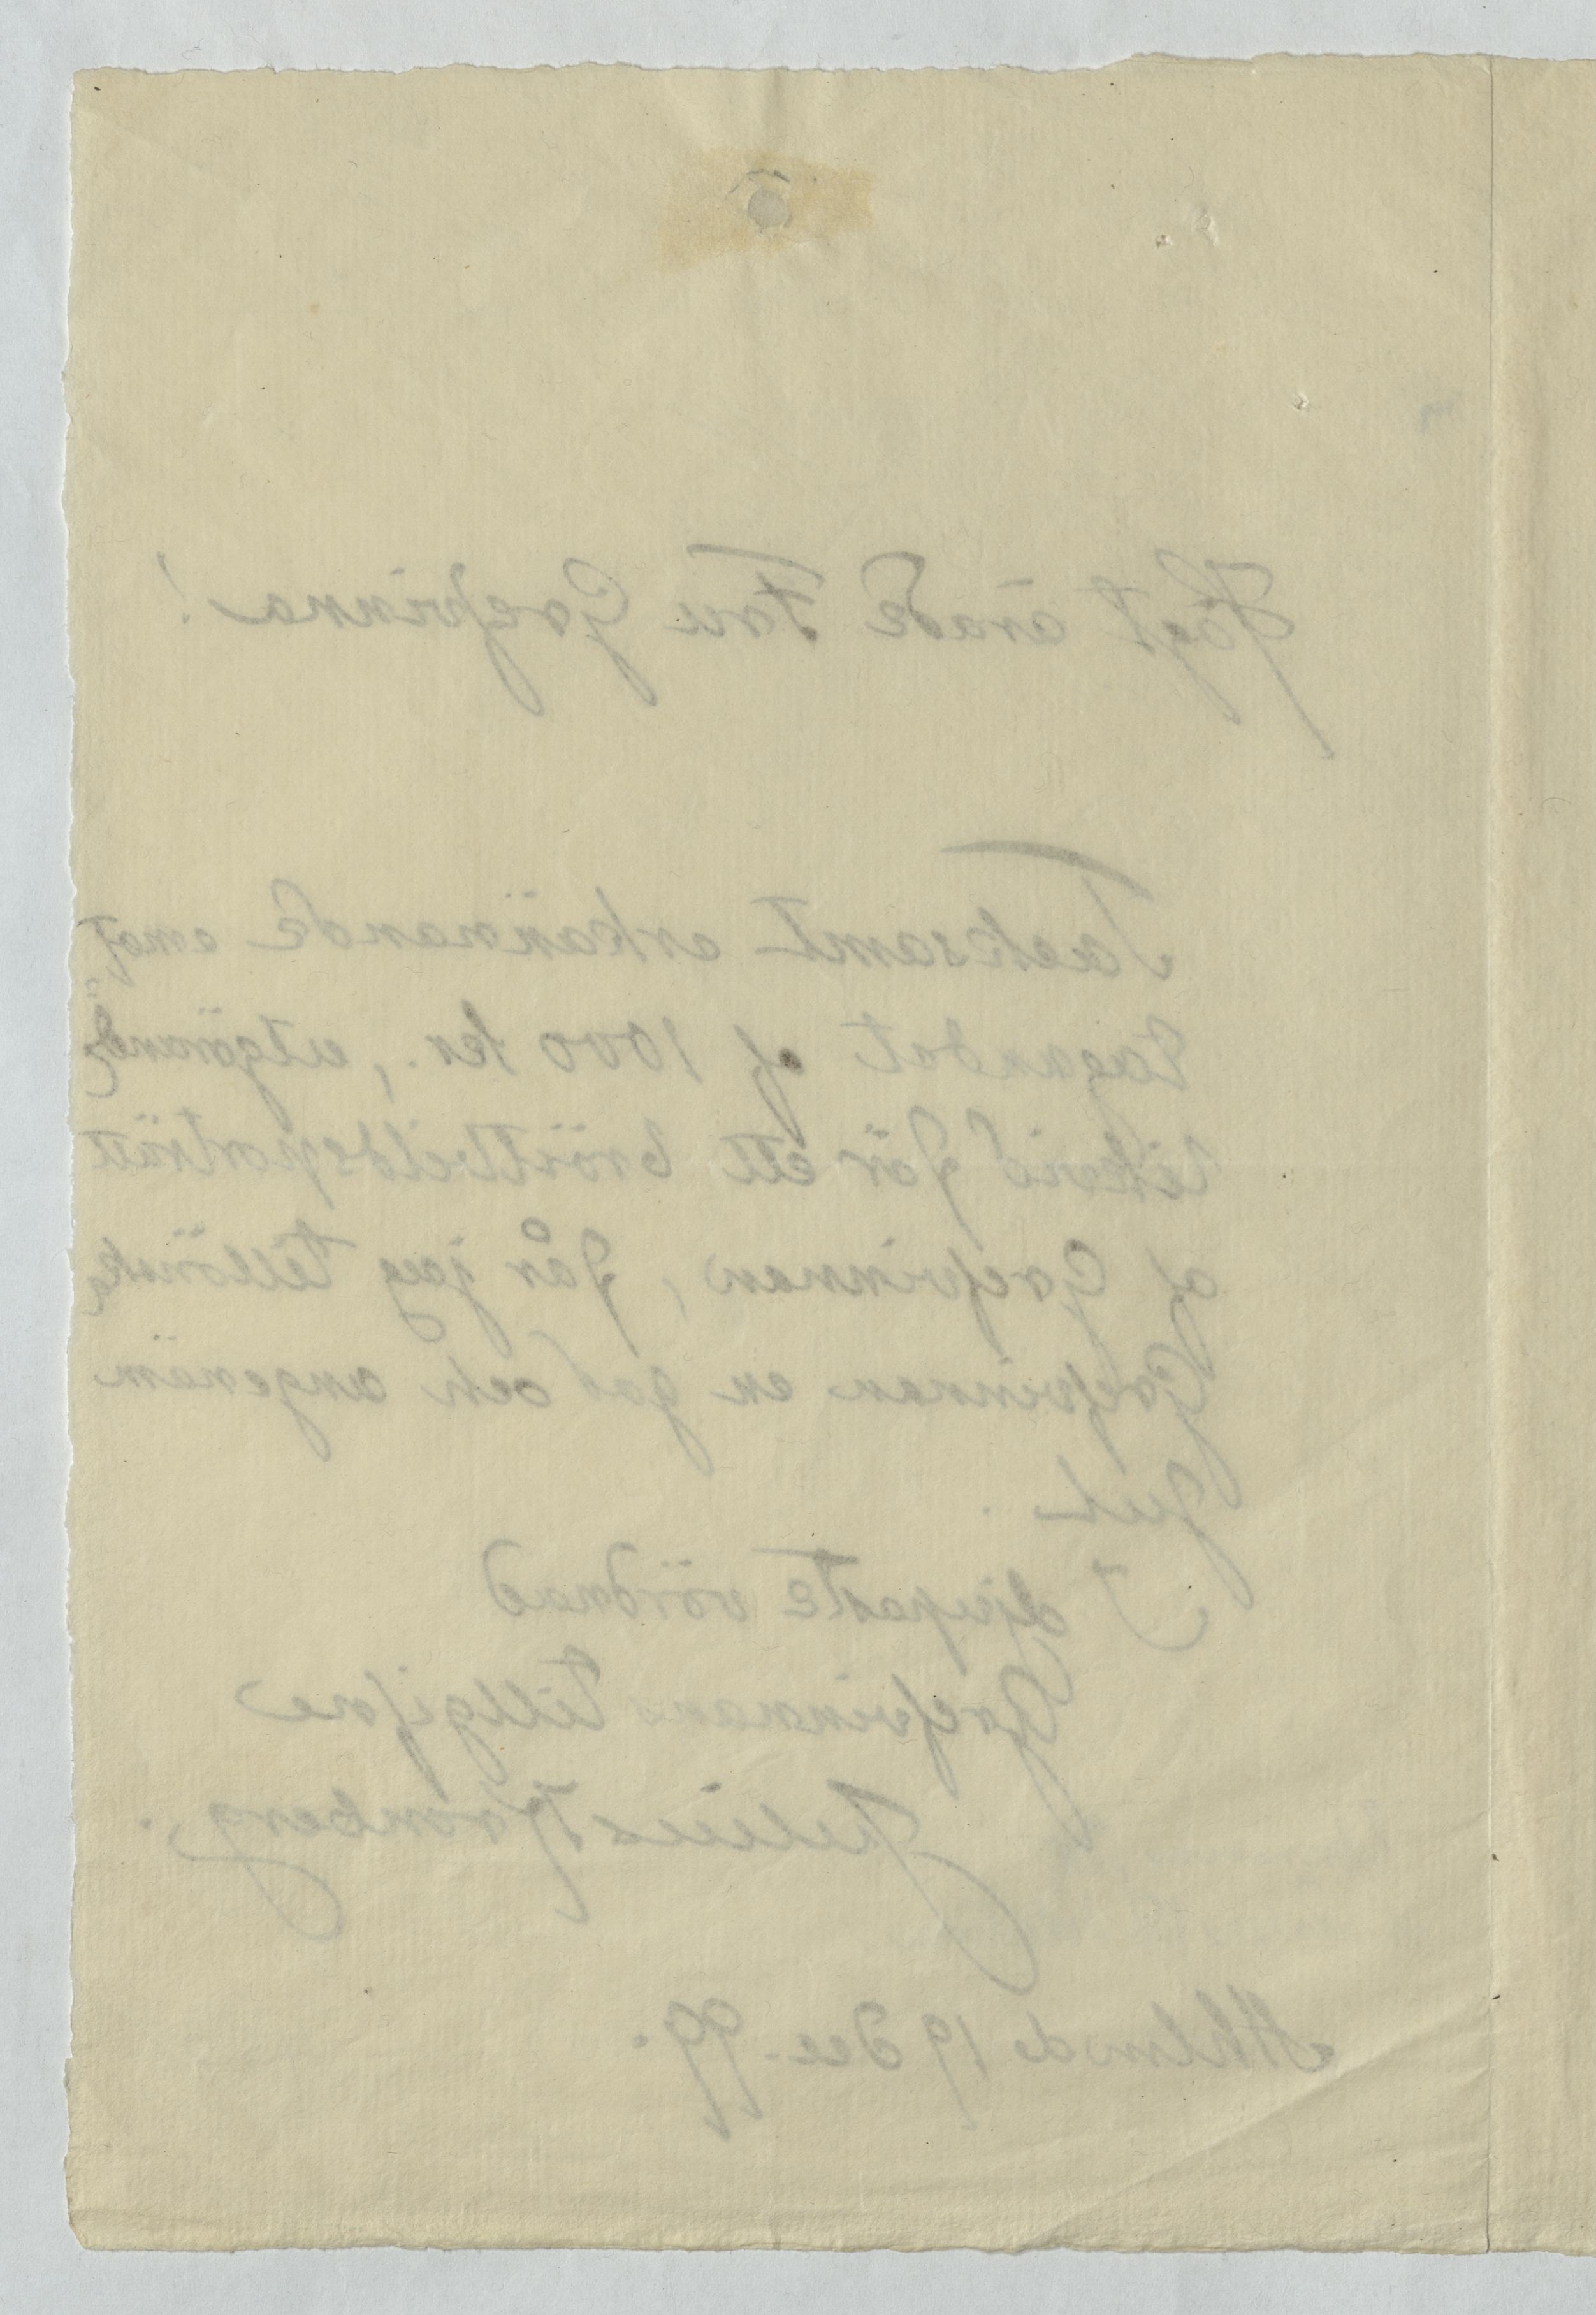 Högt ärade Fru Grefvinna!
Tacksamt erkännande emot
tagandet af 1000 kr., utgörande
likvid för ett bröstbildsporträtt
af Grefvinnan, får jag tillönska
Grefvinnan en god och angenäm
jul.
I djupaste vördnad
Grefvinnans tillgifne
Julius Kronberg.
Sthlm d. 19 dec. 99.